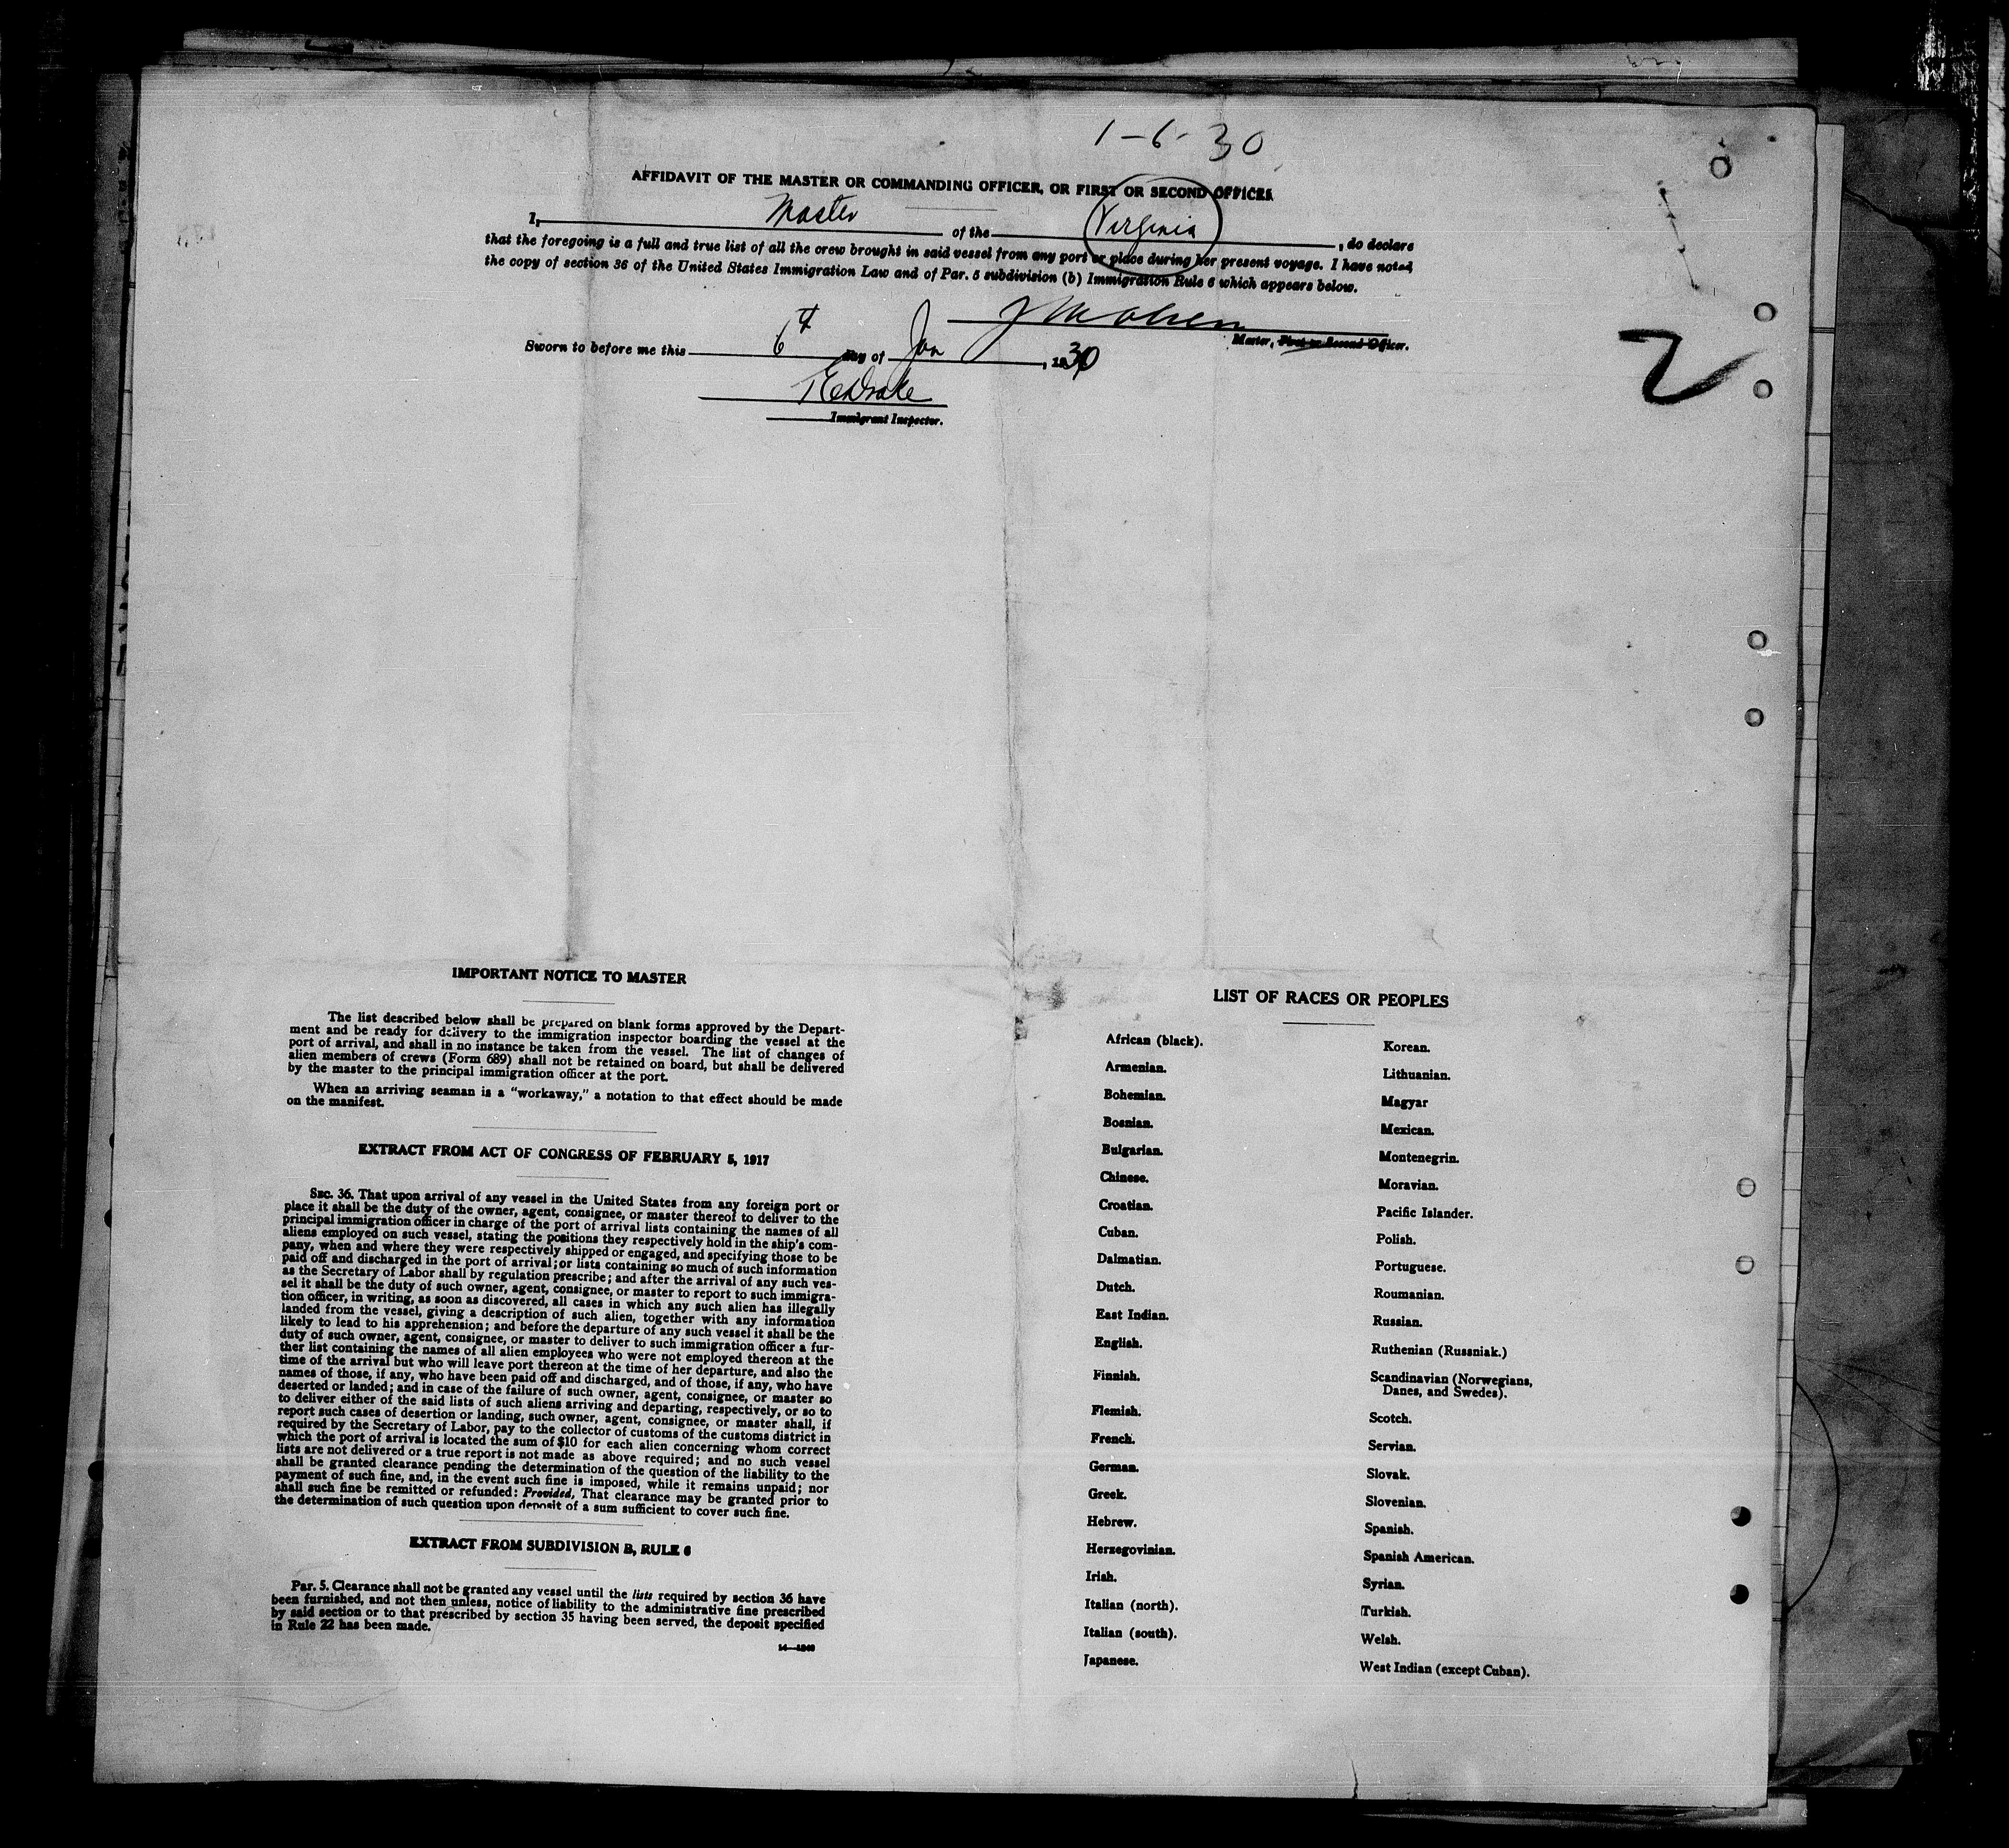 1-6-30
AFFIDAVIT OF THE MASTER OR COMMANDING OFFICER, OR FIRST OR SECOND OFFICER
I, Master of the Virginia, do declare
that the foregoing is a full and true list of all the crew brought in said vessel from any port or place during her present voyage. I have noted
the copy of section 36 of the United States Immigration Law and of Par. 5 subdivision (b) Immigration Rule 6 which appears below.
Master, First or Second Officer.
Sworn to before me this 6th day of Jan, 1930
Immigrant Inspector.
2
IMPORTANT NOTICE TO MASTER
The list described below shall be prepared on blank forms approved by the Depart-
ment and be ready for delivery to the immigration inspector boarding the vessel at the
port of arrival, and shall in no instance be taken from the vessel. The list of changes of
alien members of crews (Form 689) shall not be retained on board, but shall be delivered
by the master to the principal immigration officer at the port.
When an arriving seaman is a "workaway," a notation to that effect should be made
on the manifest.
EXTRACT FROM ACT OF CONGRESS OF FEBRUARY 5, 1917
SEC. 36. That upon arrival of any vessel in the United States from any foreign port or
place it shall be the duty of the owner, agent, consignee, or master thereof to deliver to the
principal immigration officer in charge of the port of arrival lists containing the names of all
aliens employed on such vessel, stating the positions they respectively hold in the ship's com-
pany, when and where they were respectively shipped or engaged, and specifying those to be
paid off and discharged in the port of arrival; or lists containing so much of such information
as the Secretary of Labor shall by regulation prescribe; and after the arrival of any such ves-
sel it shall be the duty of such owner, agent, consignee, or master to report to such immigra-
tion officer, in writing, as soon as discovered, all cases in which any such alien has illegally
landed from the vessel, giving a description of such alien, together with any information
likely to lead to his apprehension; and before the departure of any such vessel it shall be the
duty of such owner, agent, consignee, or master to deliver to such immigration officer a fur-
ther list containing the names of all alien employees who were not employed thereon at the
time of the arrival but who will leave port thereon at the time of her departure, and also the
names of those, if any, who have been paid off and discharged, and of those, if any, who have
deserted or landed; and in case of the failure of such owner, agent, consignee, or master so
to deliver either of the said lists of such aliens arriving and departing, respectively, or so to
report such cases of desertion or landing, such owner, agent, consignee, or master shall, if
required by the Secretary of Labor, pay to the collector of customs of the customs district in
which the port of arrival is located the sum of $10 for each alien concerning whom correct
lists are not delivered or a true report is not made as above required; and no such vessel
shall be granted clearance pending the determination of the question of the liability to the
payment of such fine, and, in the event such fine is imposed, while it remains unpaid; nor
shall such fine be remitted or refunded: Provided, That clearance may be granted prior to
the determination of such question upon deposit of a sum sufficient to cover such fine.
EXTRACT FROM SUBDIVISION B, RULE 6
Par. 5. Clearance shall not be granted any vessel until the lists required by section 36 have
been furnished, and not then unless, notice of liability to the administrative fine prescribed
by said section or to that prescribed by section 35 having been served, the deposit specified
in Rule 22 has been made.
LIST OF RACES OR PEOPLES
African (black).
Armenian.
Bohemian.
Bosnian.
Bulgarian.
Chinese.
Croatian.
Cuban.
Dalmatian.
Dutch.
East Indian.
English.
Finnish.
Flemish.
French.
German.
Greek.
Hebrew.
Herzegovinian.
Irish.
Italian (north).
Italian (south).
Japanese.
Korean.
Lithuanian.
Magyar
Mexican.
Montenegrin.
Moravian.
Pacific Islander.
Polish.
Portuguese.
Roumanian.
Russian.
Ruthenian (Russniak.)
Scandinavian (Norwegians,
Danes, and Swedes).
Scotch.
Servian.
Slovak.
Slovenian.
Spanish.
Spanish American.
Syrian.
Turkish.
Welsh.
West Indian (except Cuban).